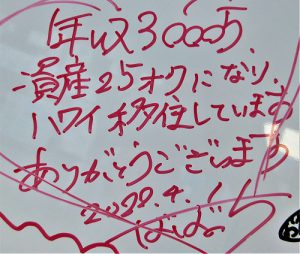 年収3000万.
資産25オクになり、
ハワイ移住しています
ありがとうございます
4.1
ばばら